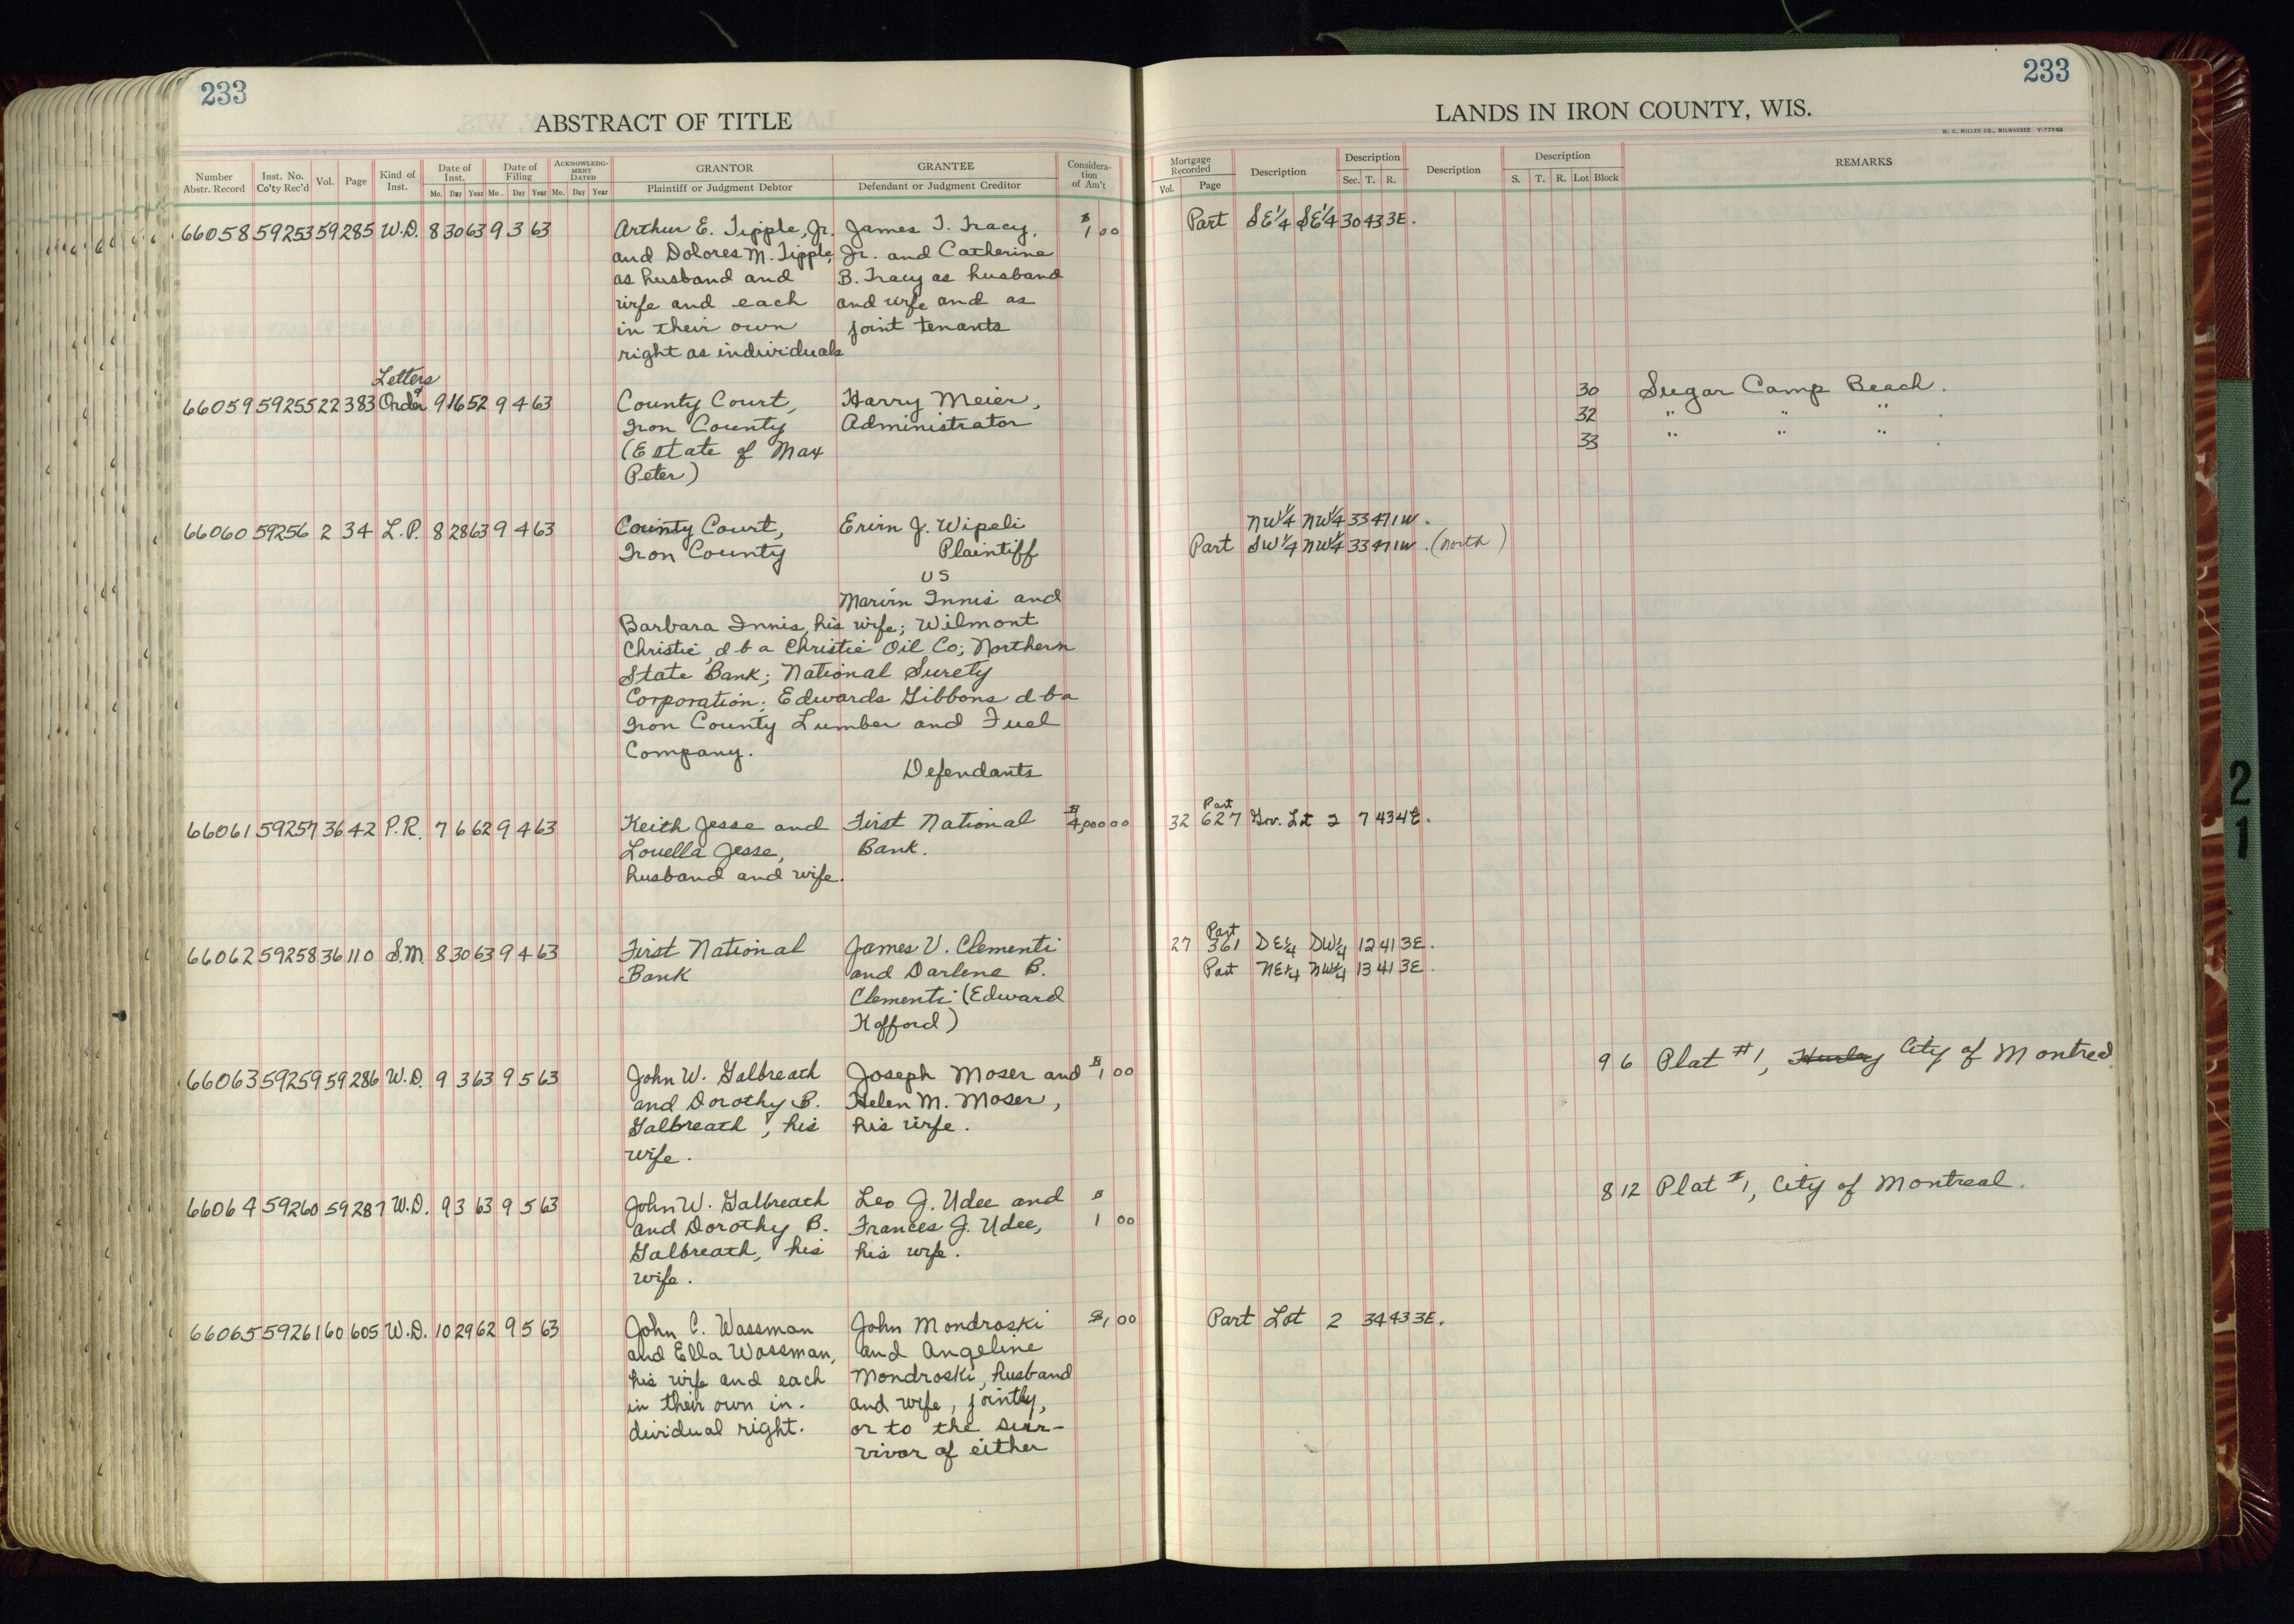 233
ABSTRACT OF TITLE
Number Abstr. Record
Inst. No. Co'ty Rec'd
Vol.
Page
Kind of Inst.
Date of Inst.
Mo. Day Year
Date of Filing
Mo. Day Year
ACKNOWLEDG-MENT DATED
Mo. Day Year
GRANTOR
Plaintiff or Judgment Debtor
GRANTEE
Defendant or Judgment Creditor
Considera-tion of Am't
66058 59253 59 285 W.D. 8 30 63 9 3 63 Arthur E. Tipple, Jr. James T. Tracy, $1 00
and Dolores M. Tipple, Jr. and Catherine
as husband and B. Tracy as husband
wife and each and wife and as
in their own joint tenants
right as individuals
Letters
66059 59255 22 383 Order 9 16 52 9 4 63 County Court, Harry Meier,
Iron County Administrator
(Estate of Max
Peter)
66060 59256 2 34 L.P. 8 28 63 9 4 63 County Court, Ervin J. Wipeli
Iron County Plaintiff
vs
Marvin Innis and
Barbara Innis, his wife; Wilmont
Christie, d b a Christie Oil Co; Northern
State Bank; National Surety
Corporation; Edwards Gibbons d b a
Iron County Lumber and Fuel
Company.
Defendants
66061 59257 36 42 P.R. 7 6 62 9 4 63 Keith Jesse and First National $4,000 00
Louella Jesse, Bank.
husband and wife.
66062 59258 36 110 S.M. 8 30 63 9 4 63 First National James V. Clementi
Bank and Darlene B.
Clementi (Edward
Hofford)
66063 59259 59 286 W.D. 9 3 63 9 5 63 John W. Galbreath Joseph Moser and $1 00
and Dorothy B. Helen M. Moser,
Galbreath, his his wife.
wife.
66064 59260 59 287 W.D. 9 3 63 9 5 63 John W. Galbreath Leo J. Udee and $
and Dorothy B. Frances J. Udee, 1 00
Galbreath, his his wife.
wife.
66065 59261 60 605 W.D. 10 29 62 9 5 63 John C. Wassman John Mondroski $1 00
and Ella Wassman, and Angeline
his wife and each Mondroski, husband
in their own in- and wife, jointly,
dividual right. or to the sur-
vivor of either
233
LANDS IN IRON COUNTY, WIS.
H. C. MILLER CO., MILWAUKEE
Mortgage Recorded
Vol. Page
Description
Description
Sec. T. R.
Description
Description
S. T. R. Lot Block
REMARKS
Part SE 1/4 SE 1/4 30 43 3E.
30 Sugar Camp Beach.
32 " " " .
33 " " " .
NW 1/4 NW 1/4 33 47 1W.
Part SW 1/4 NW 1/4 33 47 1W. (North)
Part
32 627 Gov. Lot 2 7 43 4E.
Part
27 361 SE 1/4 SW 1/4 12 41 3E.
Part NE 1/4 NW 1/4 13 41 3E.
9 6 Plat #1, Hurley City of Montreal
8 12 Plat #1, City of Montreal.
Part Lot 2 34 43 3E.
2
1